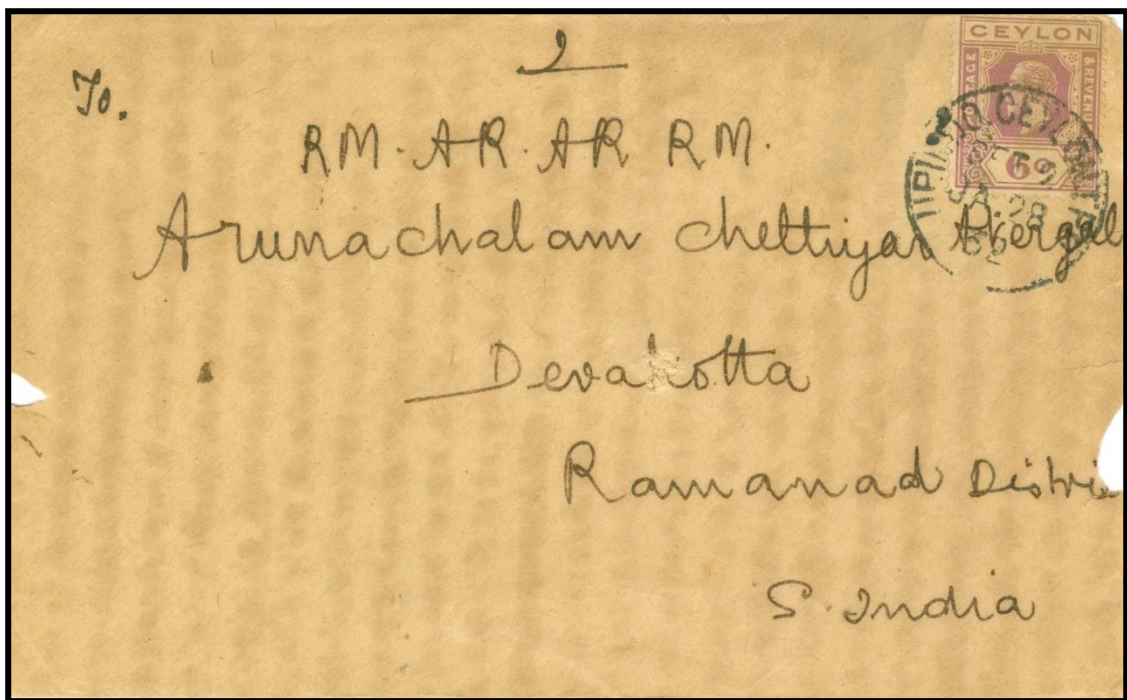 2
To.
RM. AR. AR RM.
Arunachalam chettiyar Avergal
Devakotta
Ramanad Distric
S. India
CEYLON
POSTAGE & REVENUE
6c
CEYLON
JA 28